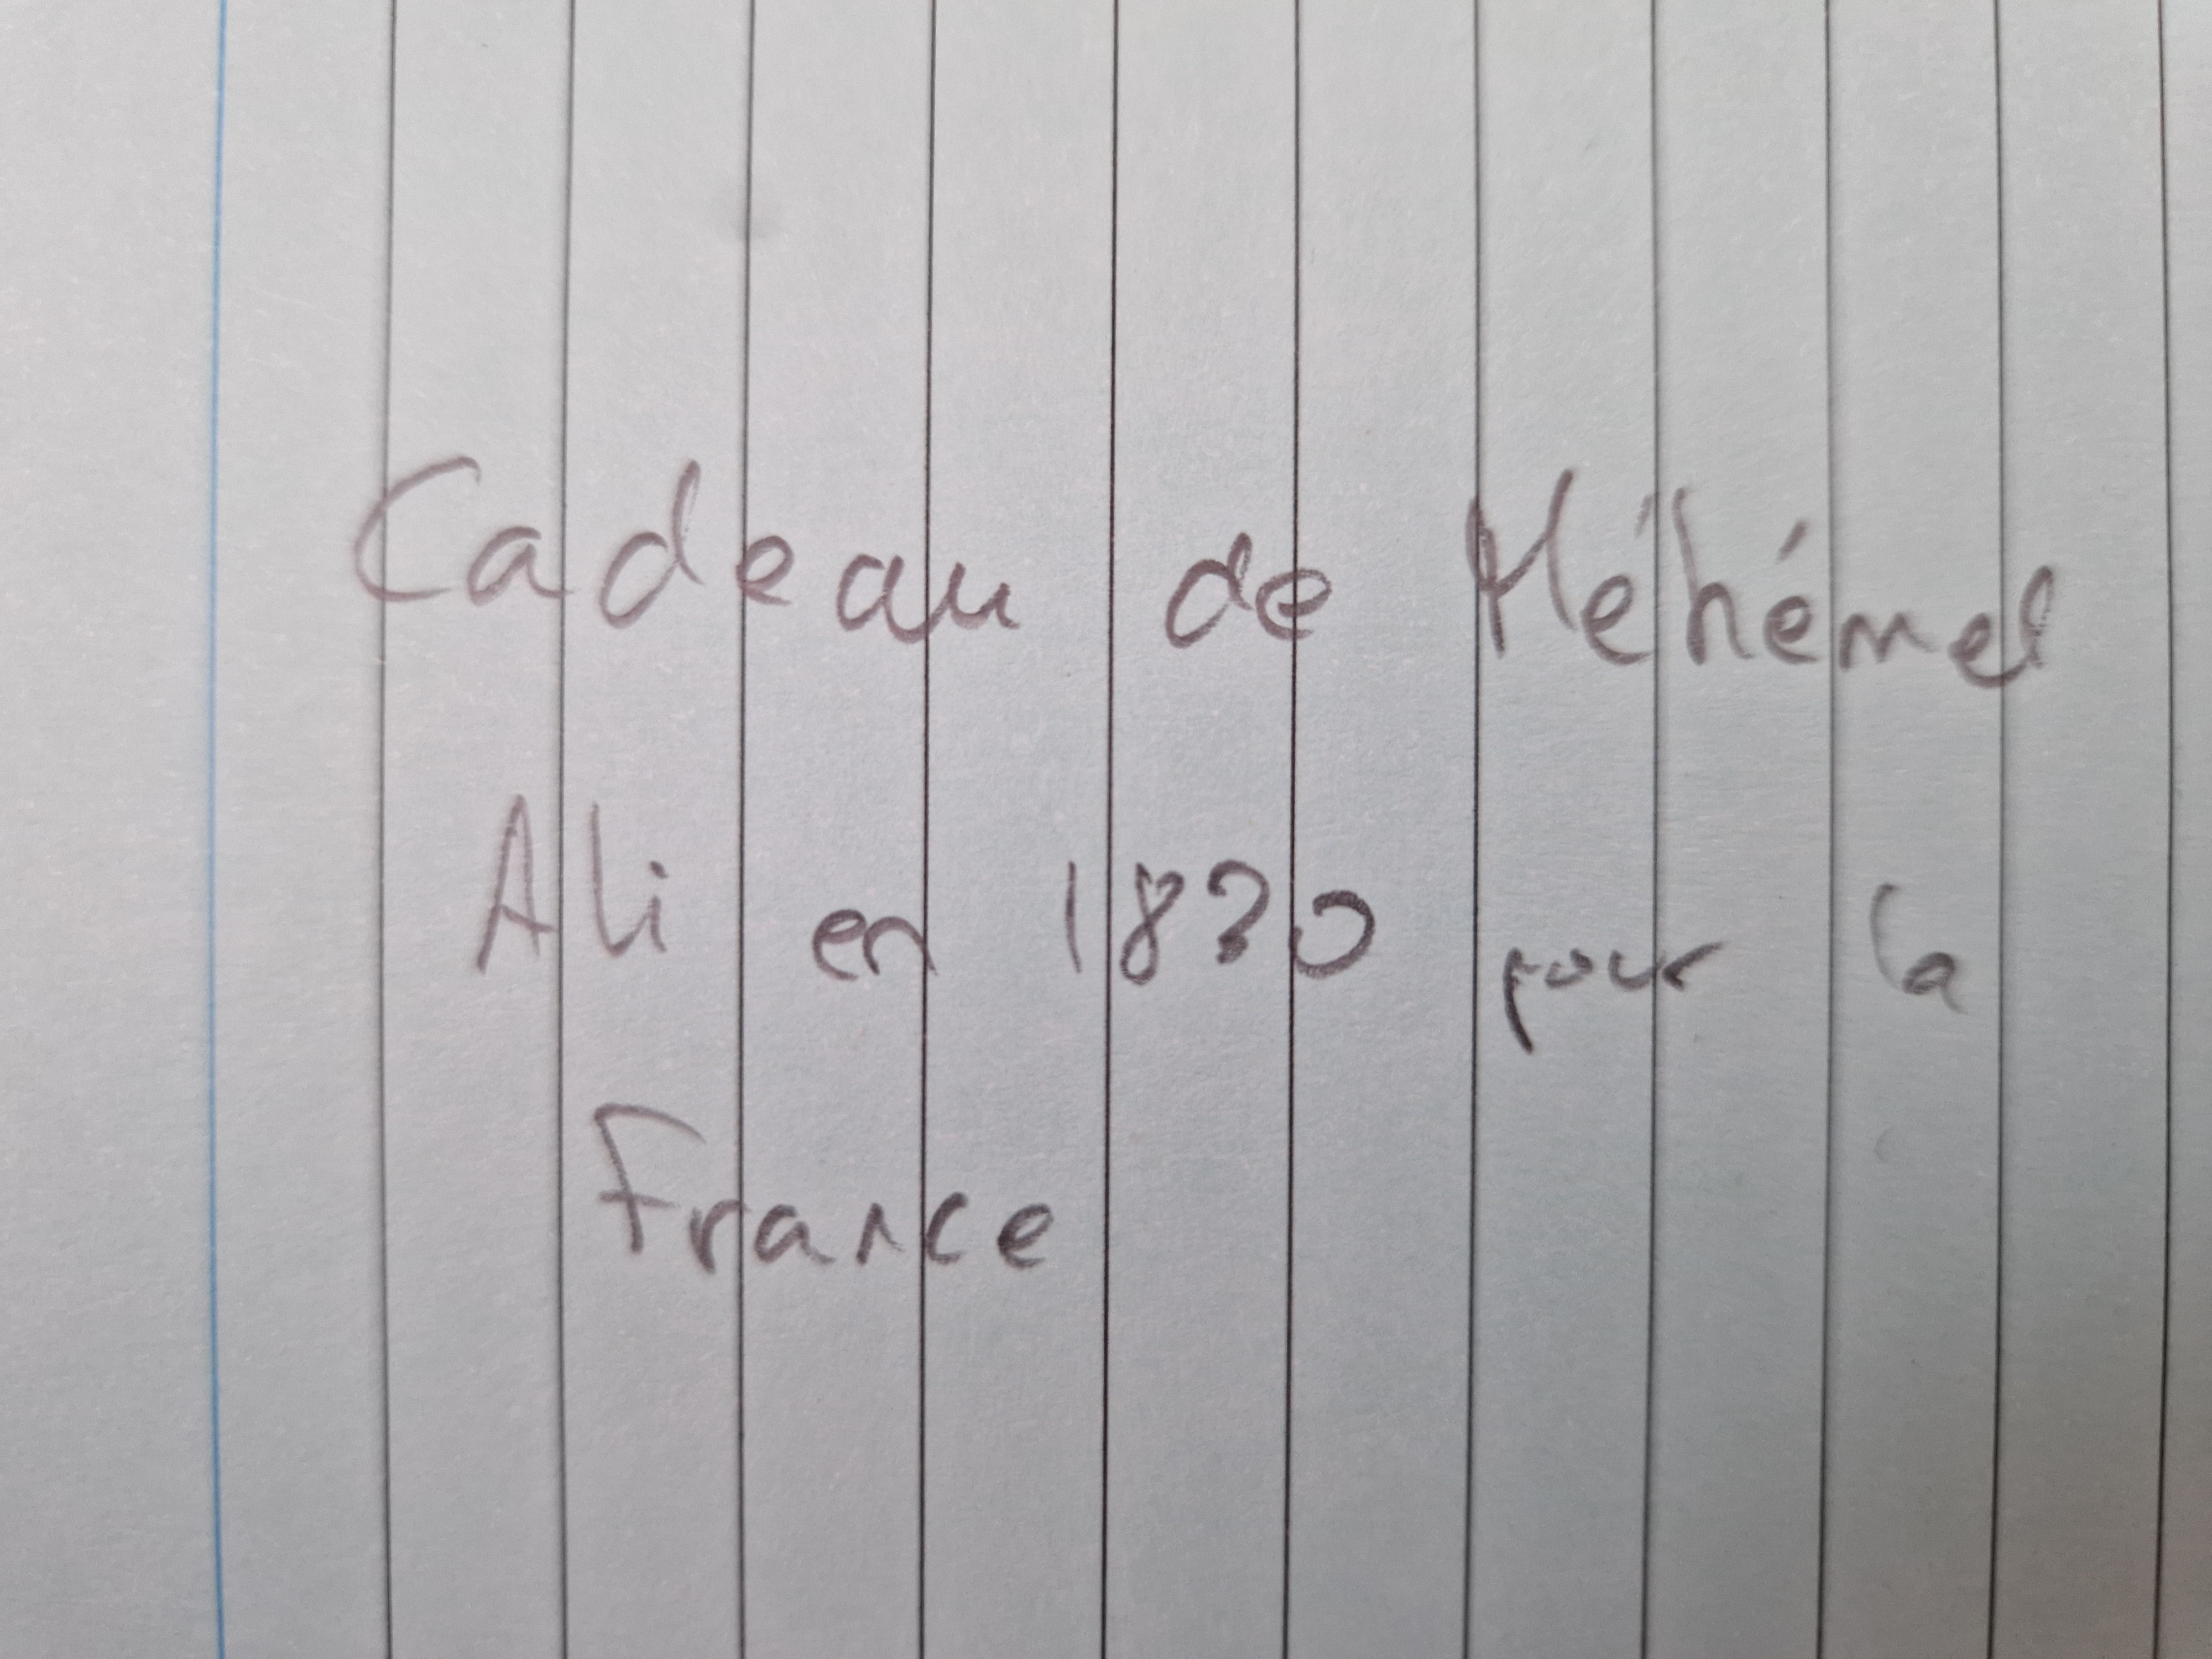 Cadeau de Méhémel
Ali en 1820 pour la
France